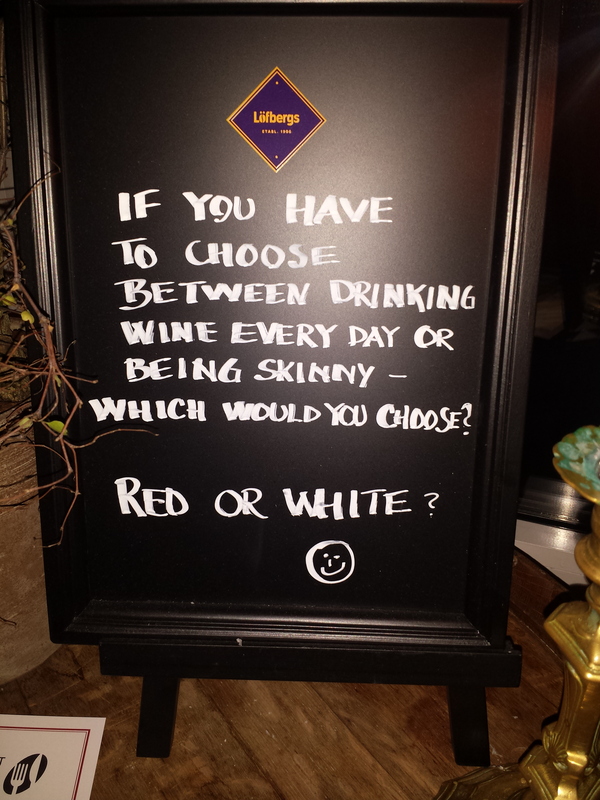 Löfbergs
ESTABL. 1906
IF YOU HAVE
TO CHOOSE
BETWEEN DRINKING
WINE EVERY DAY OR
BEING SKINNY –
WHICH WOULD YOU CHOOSE?
RED OR WHITE?